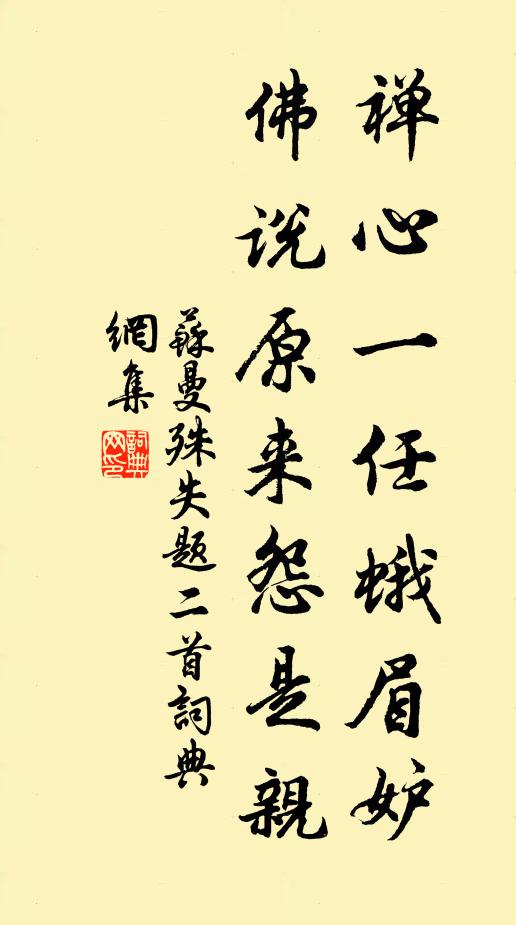 禅心一任蛾眉妒
佛说原来怨是親
蘇曼殊失题二首詞典
網集
詞典网印